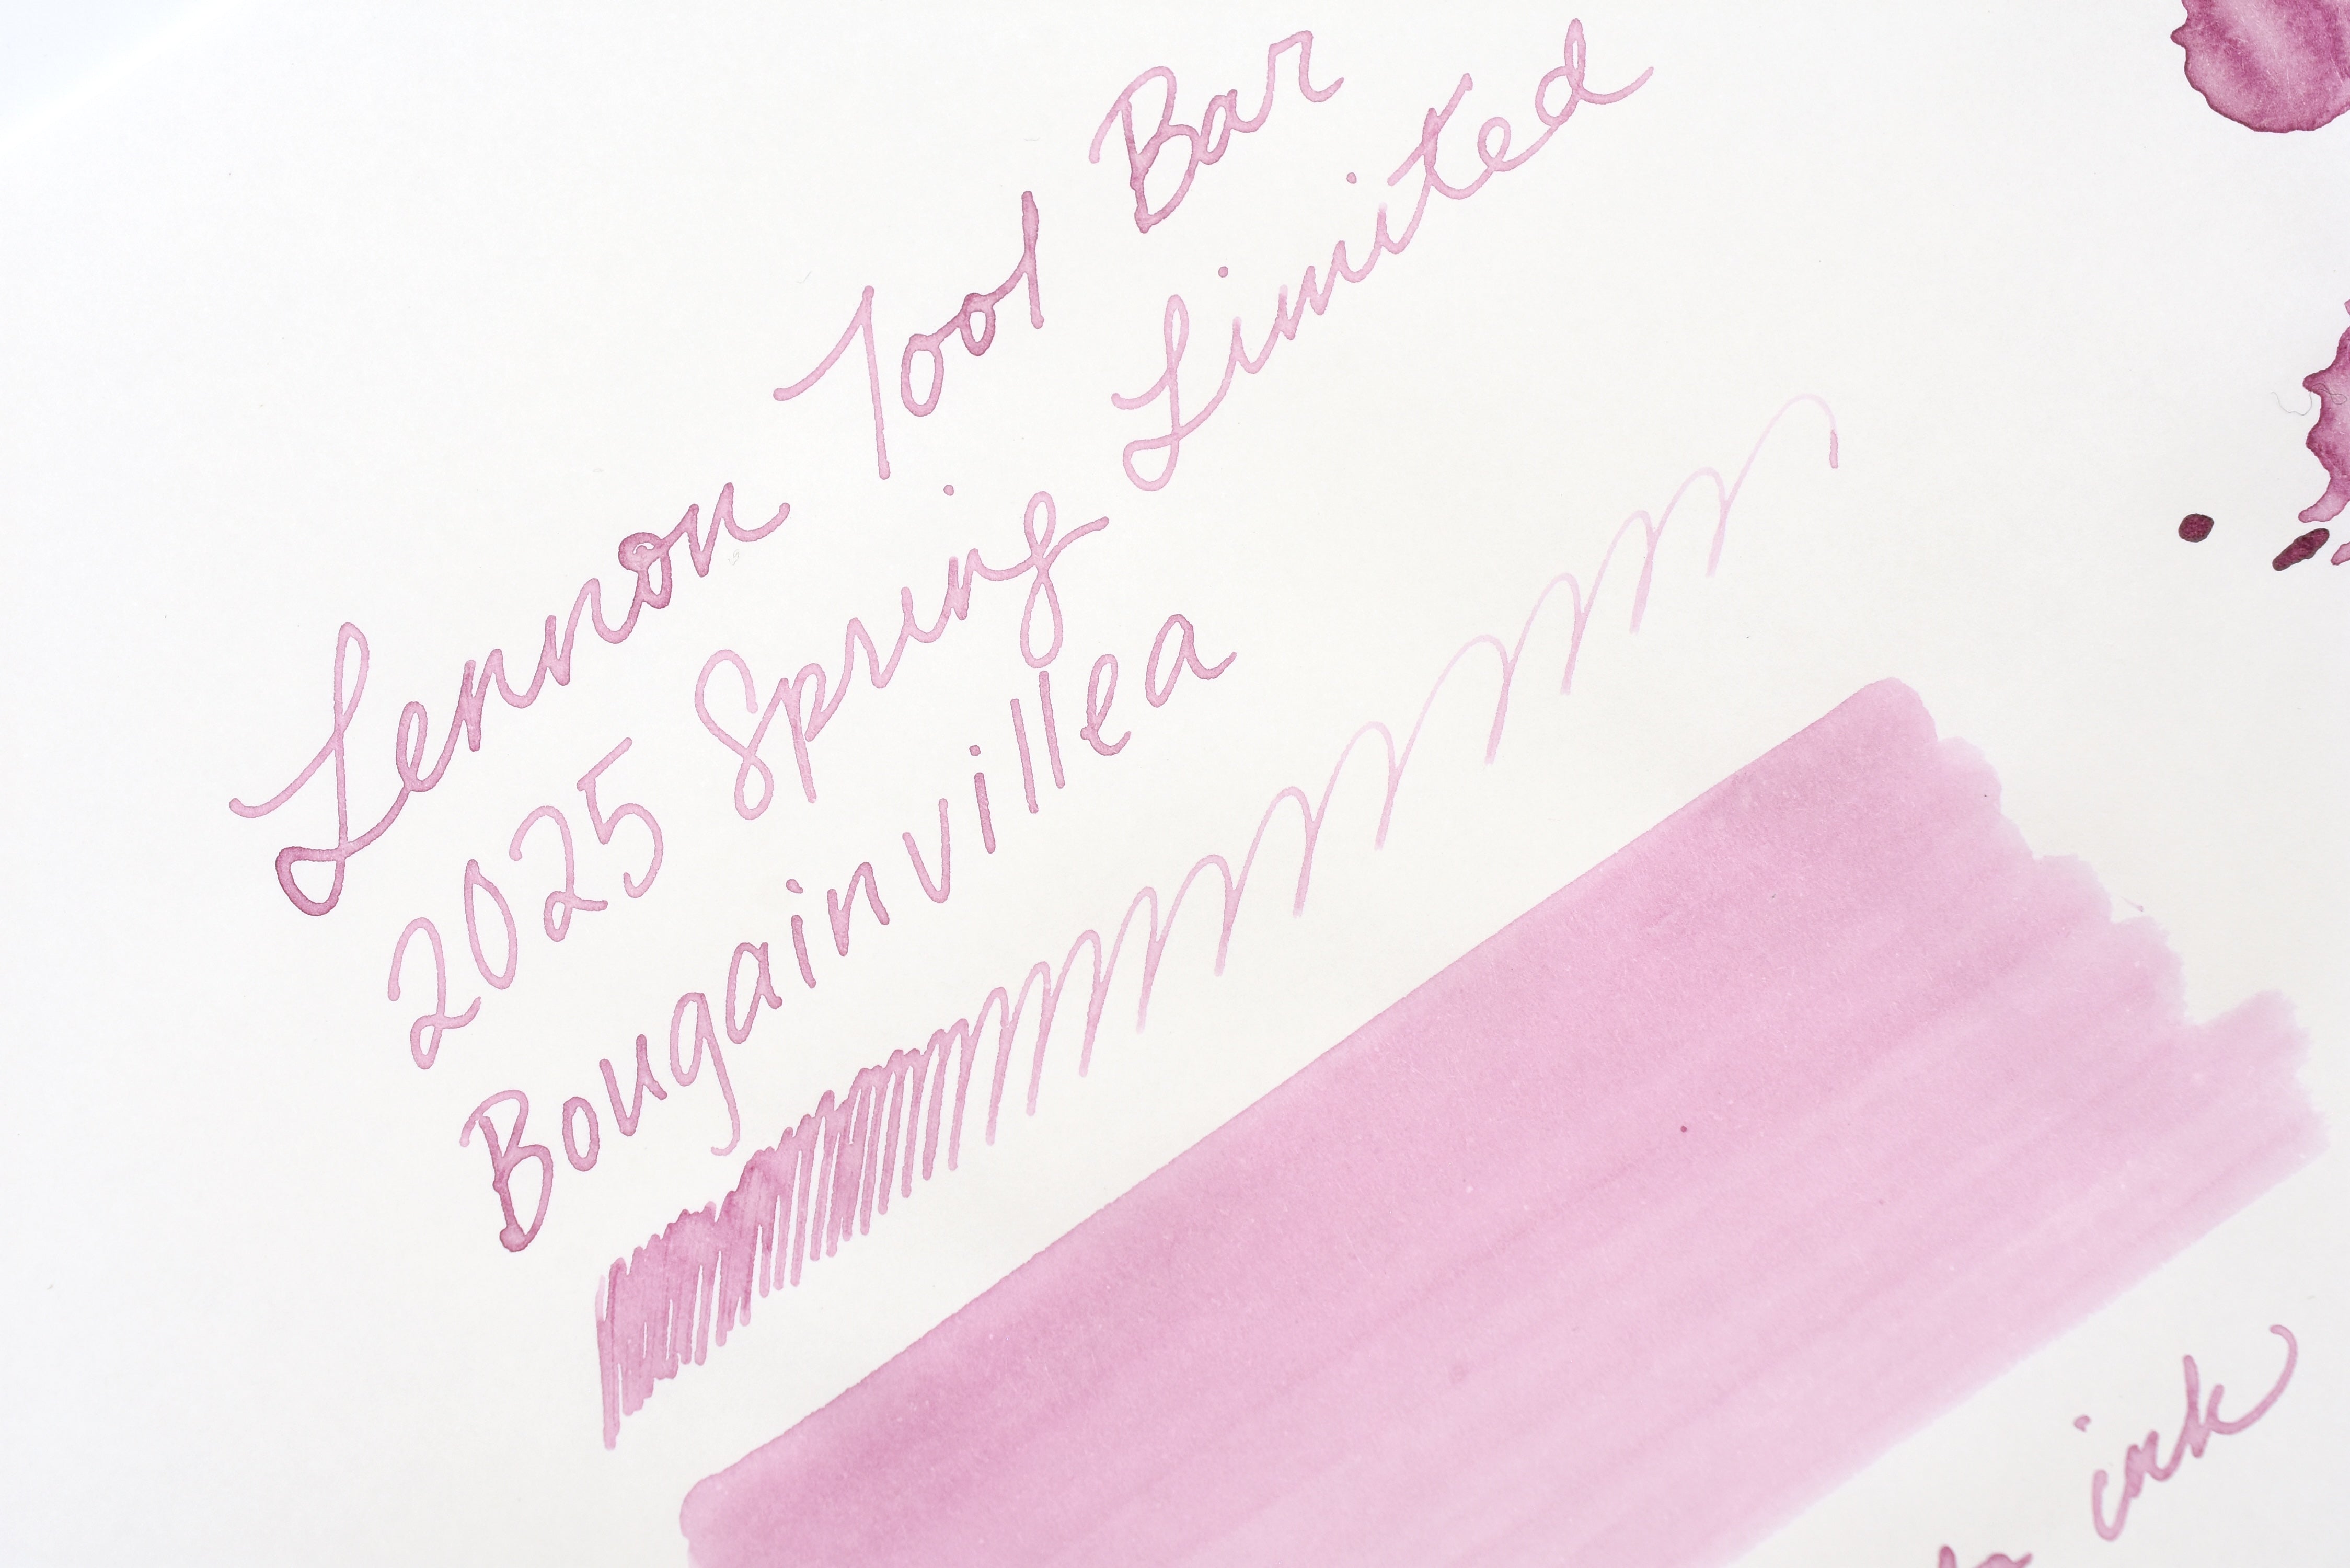 Lennon Tool Bar
2025 Spring Limited
Bougainvillea
ink